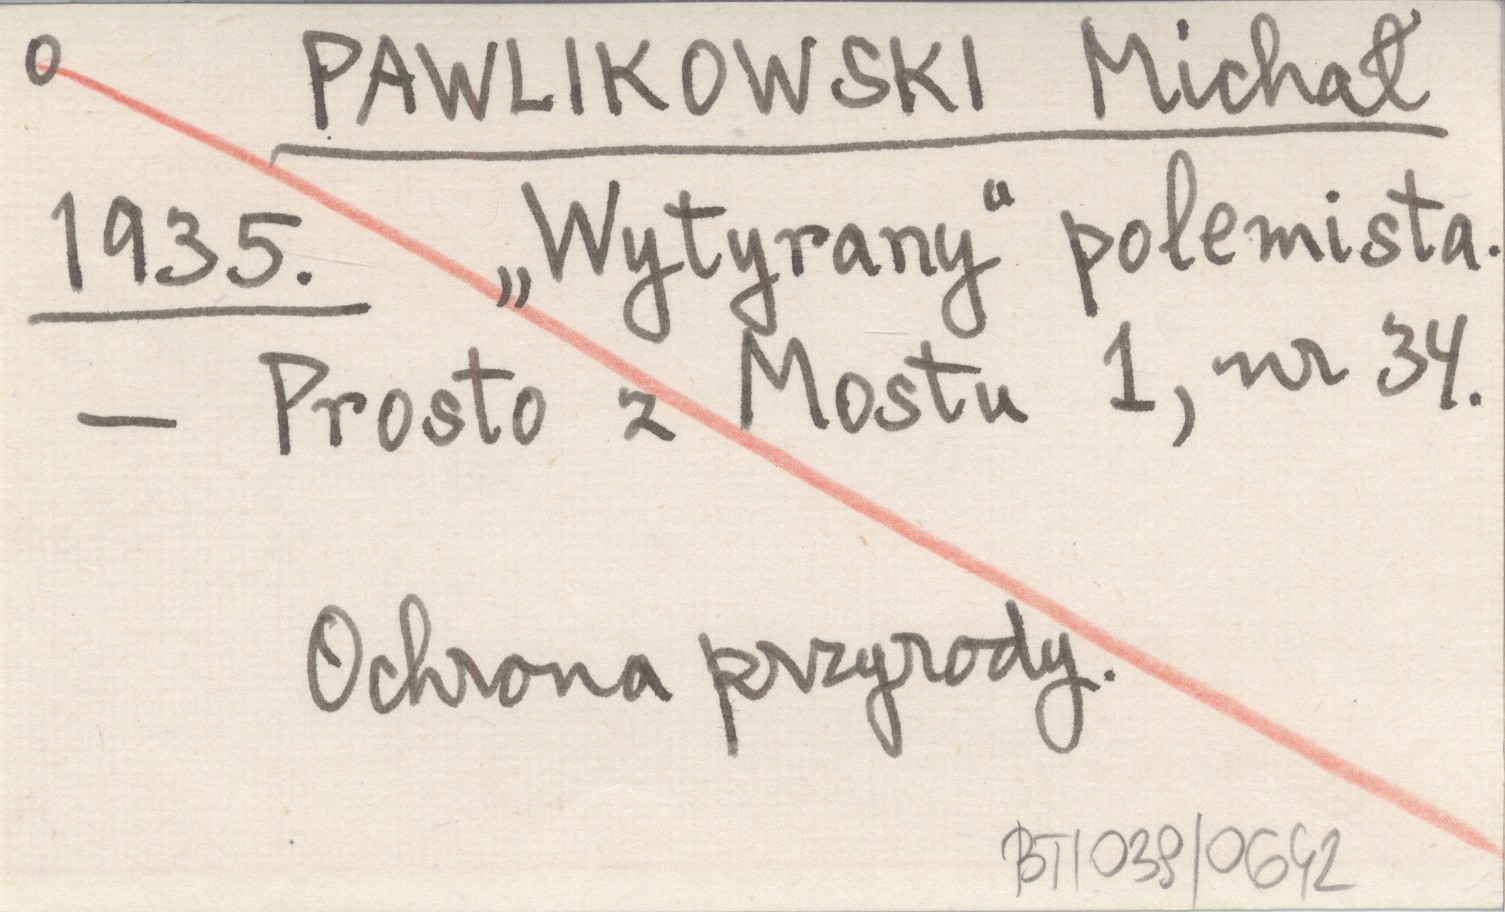 O PAWLIKOWSKI Michał
1935. „Wytyrany“ polemista.
— Prosto z Mostu 1, nr 34.
Ochrona przyrody.
BT/038/0642